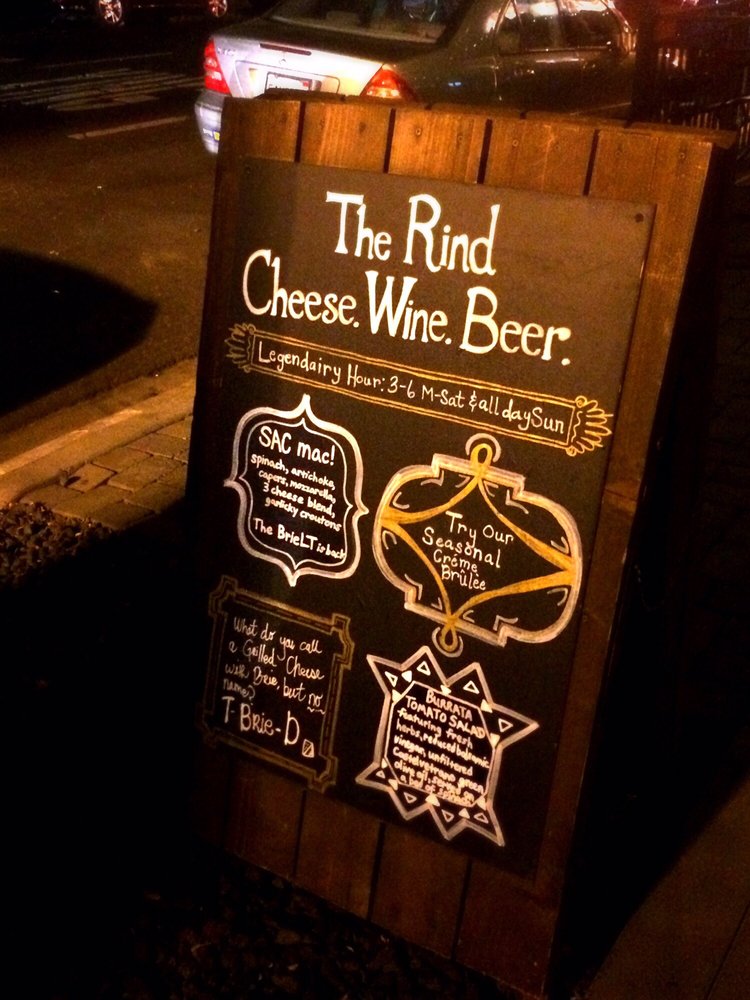 The Rind
Cheese. Wine. Beer.
Legendairy Hour: 3-6 M-Sat & all day Sun
SAC mac!
spinach, artichoke,
capers, mozzarella,
3 cheese blend,
garlicky croutons
The BrieLT is back
Try Our
Seasonal
Créme
Brûlée
What do you call
a Grilled Cheese
with Brie, but no
name?
T-Brie-D.
BURRATA
TOMATO SALAD
featuring fresh
herbs, reduced balsamic
vinegar, unfiltered
Castelvetrano green
olive oil, served on
a bed of spinach